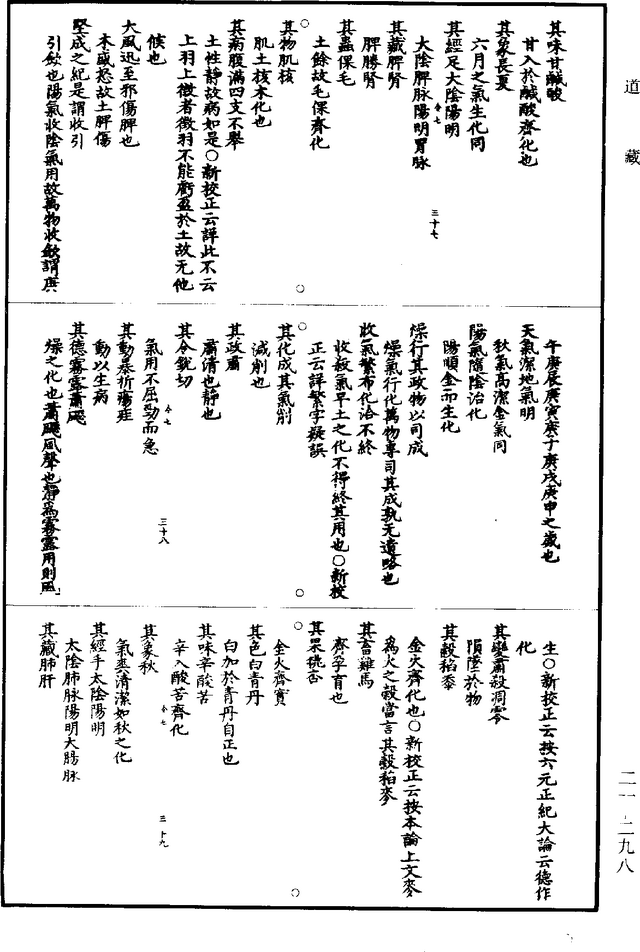 道藏
其味甘鹹酸
甘入於鹹酸齊化也
其象長夏
六月之氣生化同
其經足太陰陽明
太陰脾脉陽明胃脉
其藏脾腎
脾勝腎
其蟲倮毛
土餘故毛倮齊化
其物肌核
肌土核木化也
其病腹滿四支不舉
土性靜故病如是○新校正云詳此不云
上羽上徵者徵羽不能虧盈於土故无他
候也
大風迅至邪傷脾也
木或怒故土脾傷
堅成之紀是謂收引
引斂也陽氣收陰氣用故萬物收斂謂庚
三十七
午庚辰庚寅庚子庚戌庚申之歲也
天氣潔地氣明
秋氣高潔金氣同
陽氣隨陰治化
陽順金而生化
燥行其政物以司成
燥氣行化萬物專司其成熟无遺略也
收氣繁布化洽不終
收殺氣早土之化不得終其用也○新校
正云詳繁字疑誤
其化成其氣削
減削也
其政肅
肅清也靜也
其令銳切
氣用不屈勁而急
其動暴折瘍疰
動以生病
其德霧露蕭飋
燥之化也蕭飋風聲也靜爲霧露用則風
三十八
生○新校正云按六元正紀大論云德作
化
其變肅殺凋零
隕墜於物
其穀稻黍
金火齊化也○新校正云按本論上文麥
爲火之穀當言其穀稻麥
其畜雞馬
齊孕育也
其果桃杏
金火齊實
其色白青丹
白加於青丹自正也
其味辛酸苦
辛入酸苦齊化
其象秋
氣爽清潔如秋之化
其經手太陰陽明
太陰肺脉陽明大腸脉
其藏肺肝
三十九
二一-二九八